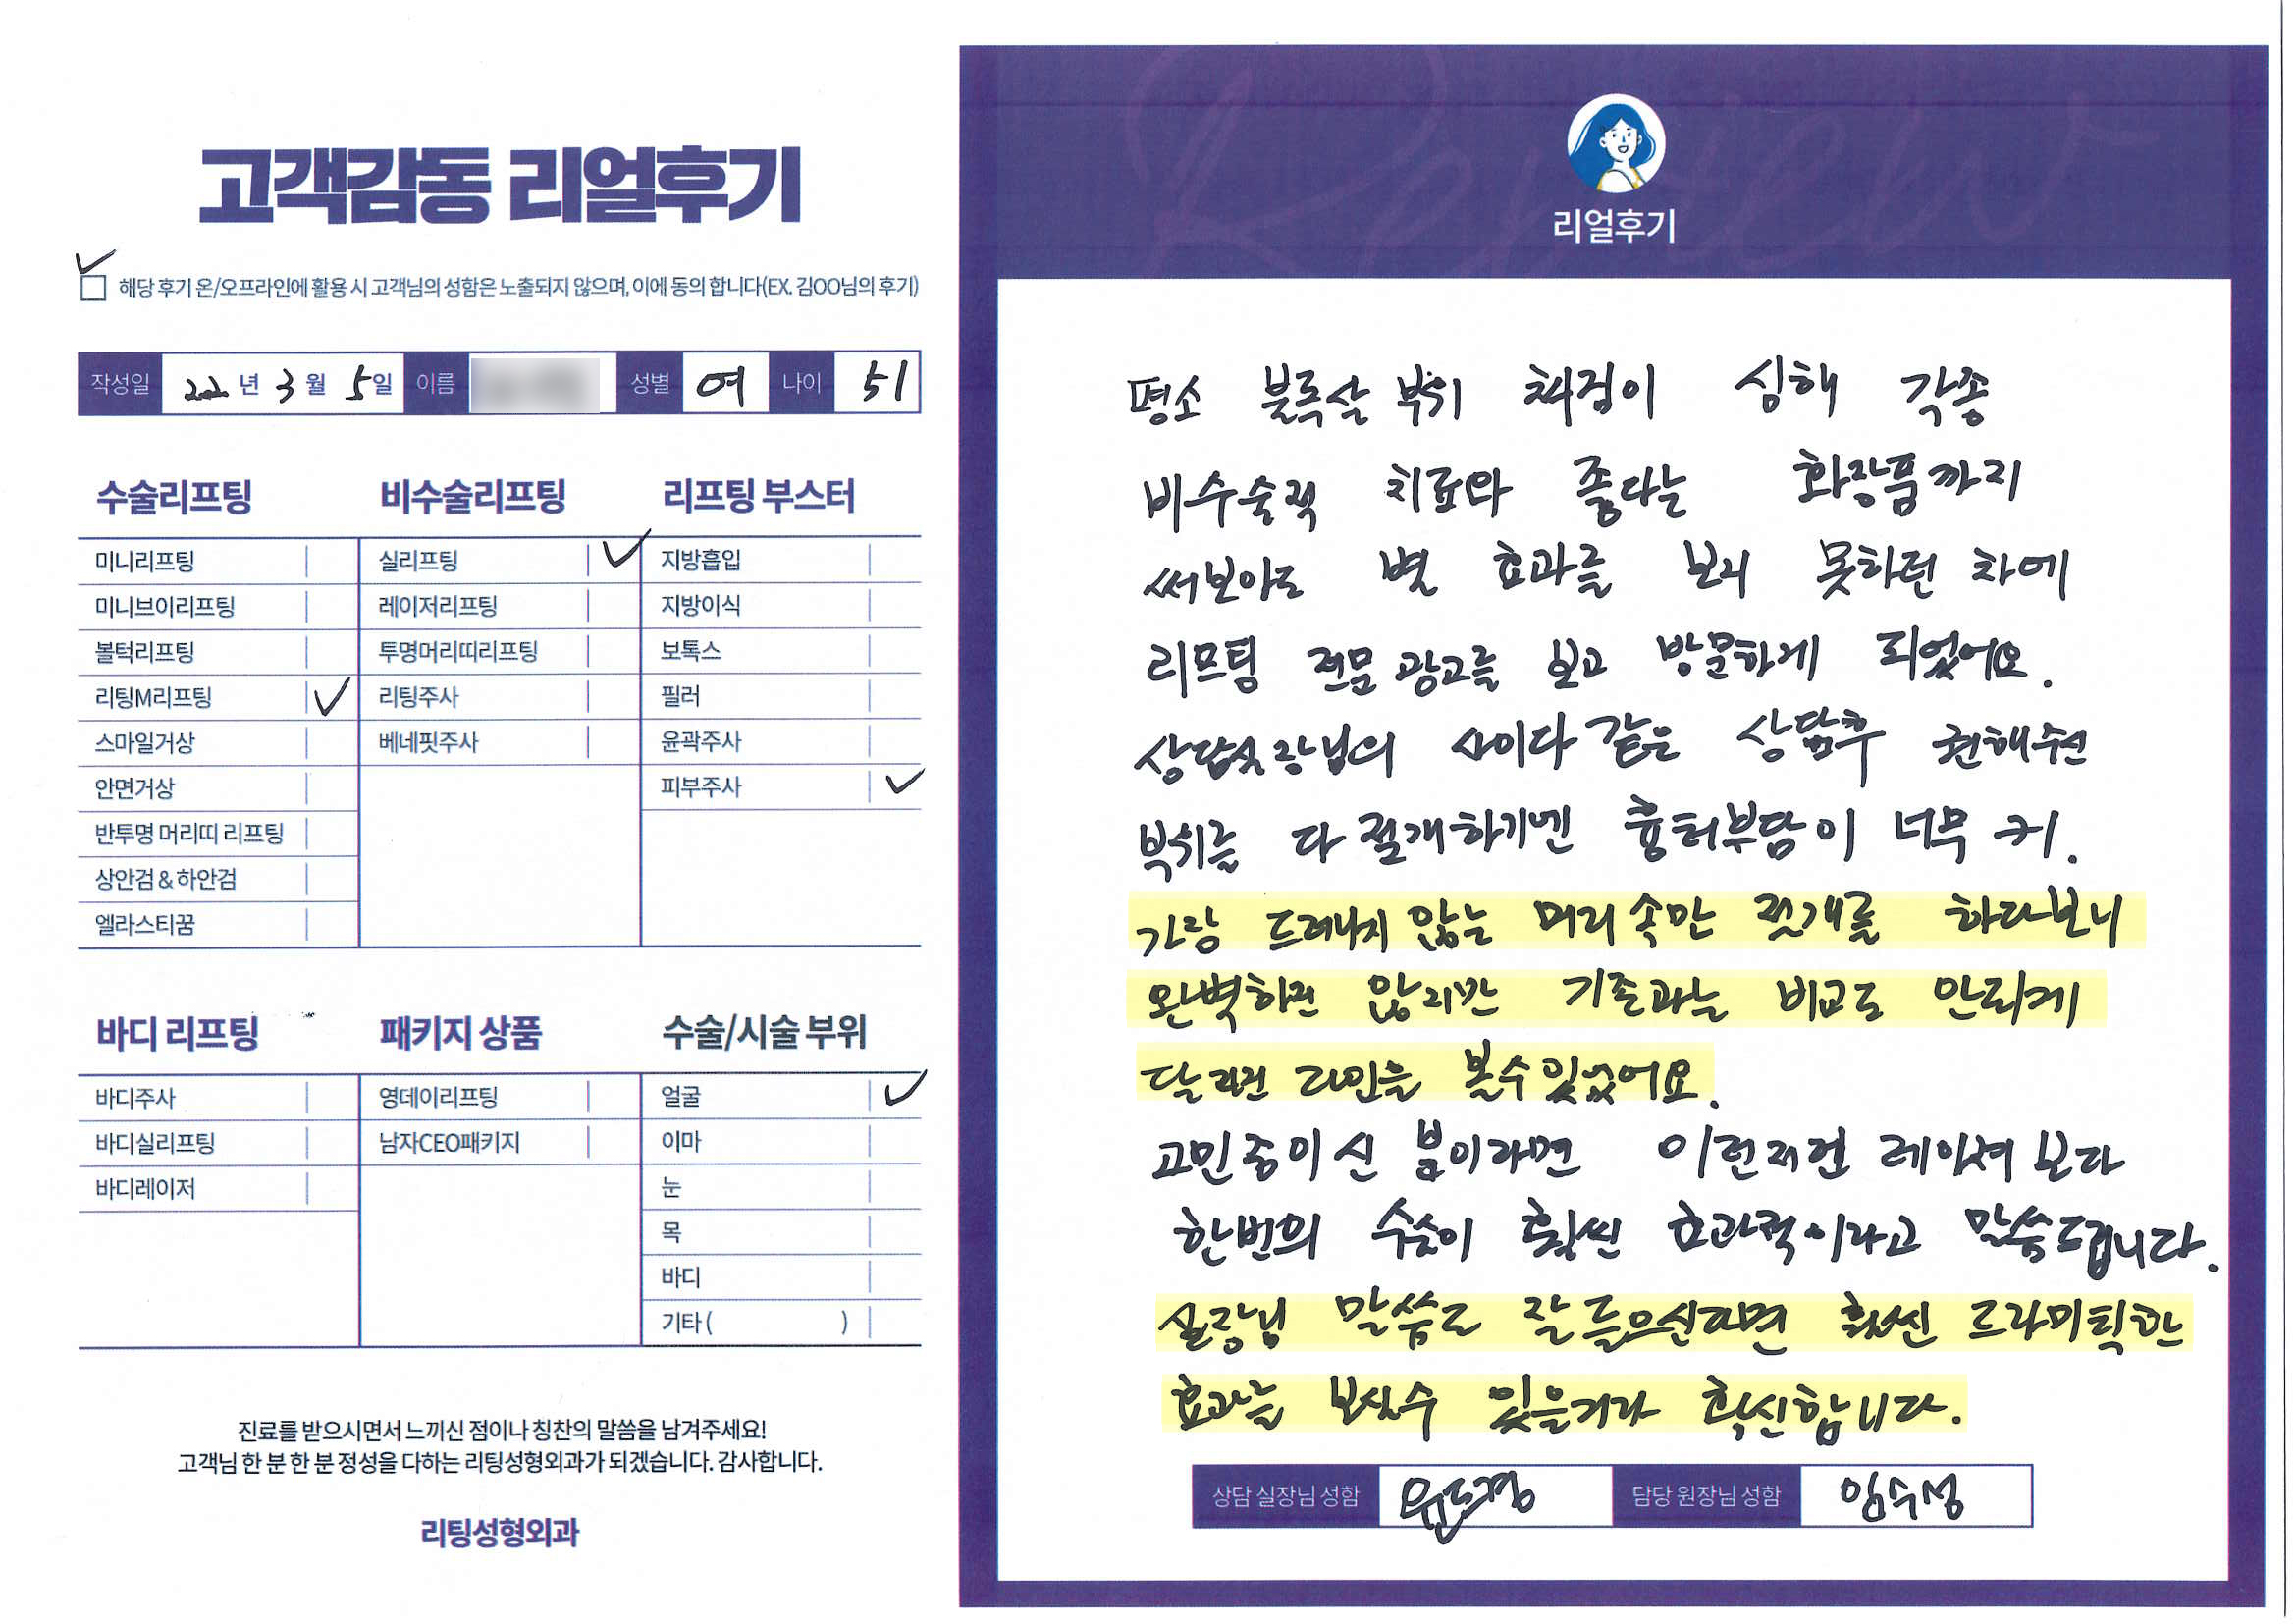 고객감동 리얼후기
해당 후기 온/오프라인에 활용 시 고객님의 성함은 노출되지 않으며, 이에 동의 합니다(EX. 김OO님의 후기)
작성일 22년 3월 5일 이름 성별 여 나이 51
수술리프팅
미니리프팅
미니브이리프팅
볼턱리프팅
리팅M리프팅
스마일거상
안면거상
반투명 머리띠 리프팅
상안검 & 하안검
엘라스티꿈
비수술리프팅
실리프팅
레이저리프팅
투명머리띠리프팅
리팅주사
베네핏주사
리프팅 부스터
지방흡입
지방이식
보톡스
필러
윤곽주사
피부주사
바디 리프팅
바디주사
바디실리프팅
바디레이저
패키지 상품
영데이리프팅
남자CEO패키지
수술/시술 부위
얼굴
이마
눈
목
바디
기타 ( )
진료를 받으시면서 느끼신 점이나 칭찬의 말씀을 남겨주세요!
고객님 한 분 한 분 정성을 다하는 리팅성형외과가 되겠습니다. 감사합니다.
리팅성형외과
Review
리얼후기
평소 불룩살 부위 처짐이 심해 각종
비수술적 치료와 좋다는 화장품까지
써보아도 별 효과를 보지 못하던 차에
리프팅 전문 광고를 보고 방문하게 되었어요.
상담실장님의 사이다 같은 상담후 권해주신
부위를 다 절개하기엔 흉터부담이 너무 커.
가장 드러나지 않는 머리속만 절개를 하다보니
완벽하진 않지만 기존과는 비교도 안되게
달라진 라인을 볼수있었어요.
고민중이신 분이라면 이런저런 레이져 보다
한번의 수술이 훨씬 효과적이라고 말씀드립니다.
실장님 말씀도 잘 들으신다면 훨씬 드라마틱한
효과를 보실수 있을거라 확신합니다.
상담 실장님 성함
담당 원장님 성함 임수성